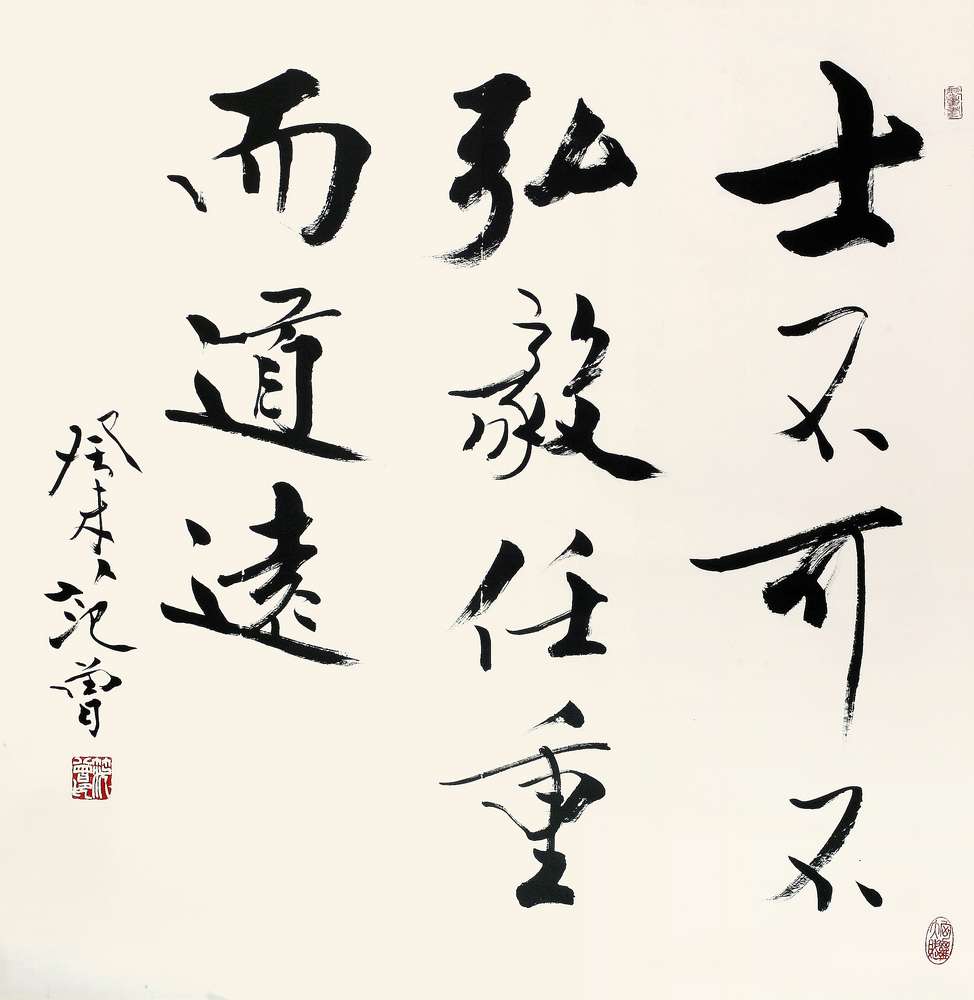 士不可不
弘毅任重
而道遠
癸未 范曾